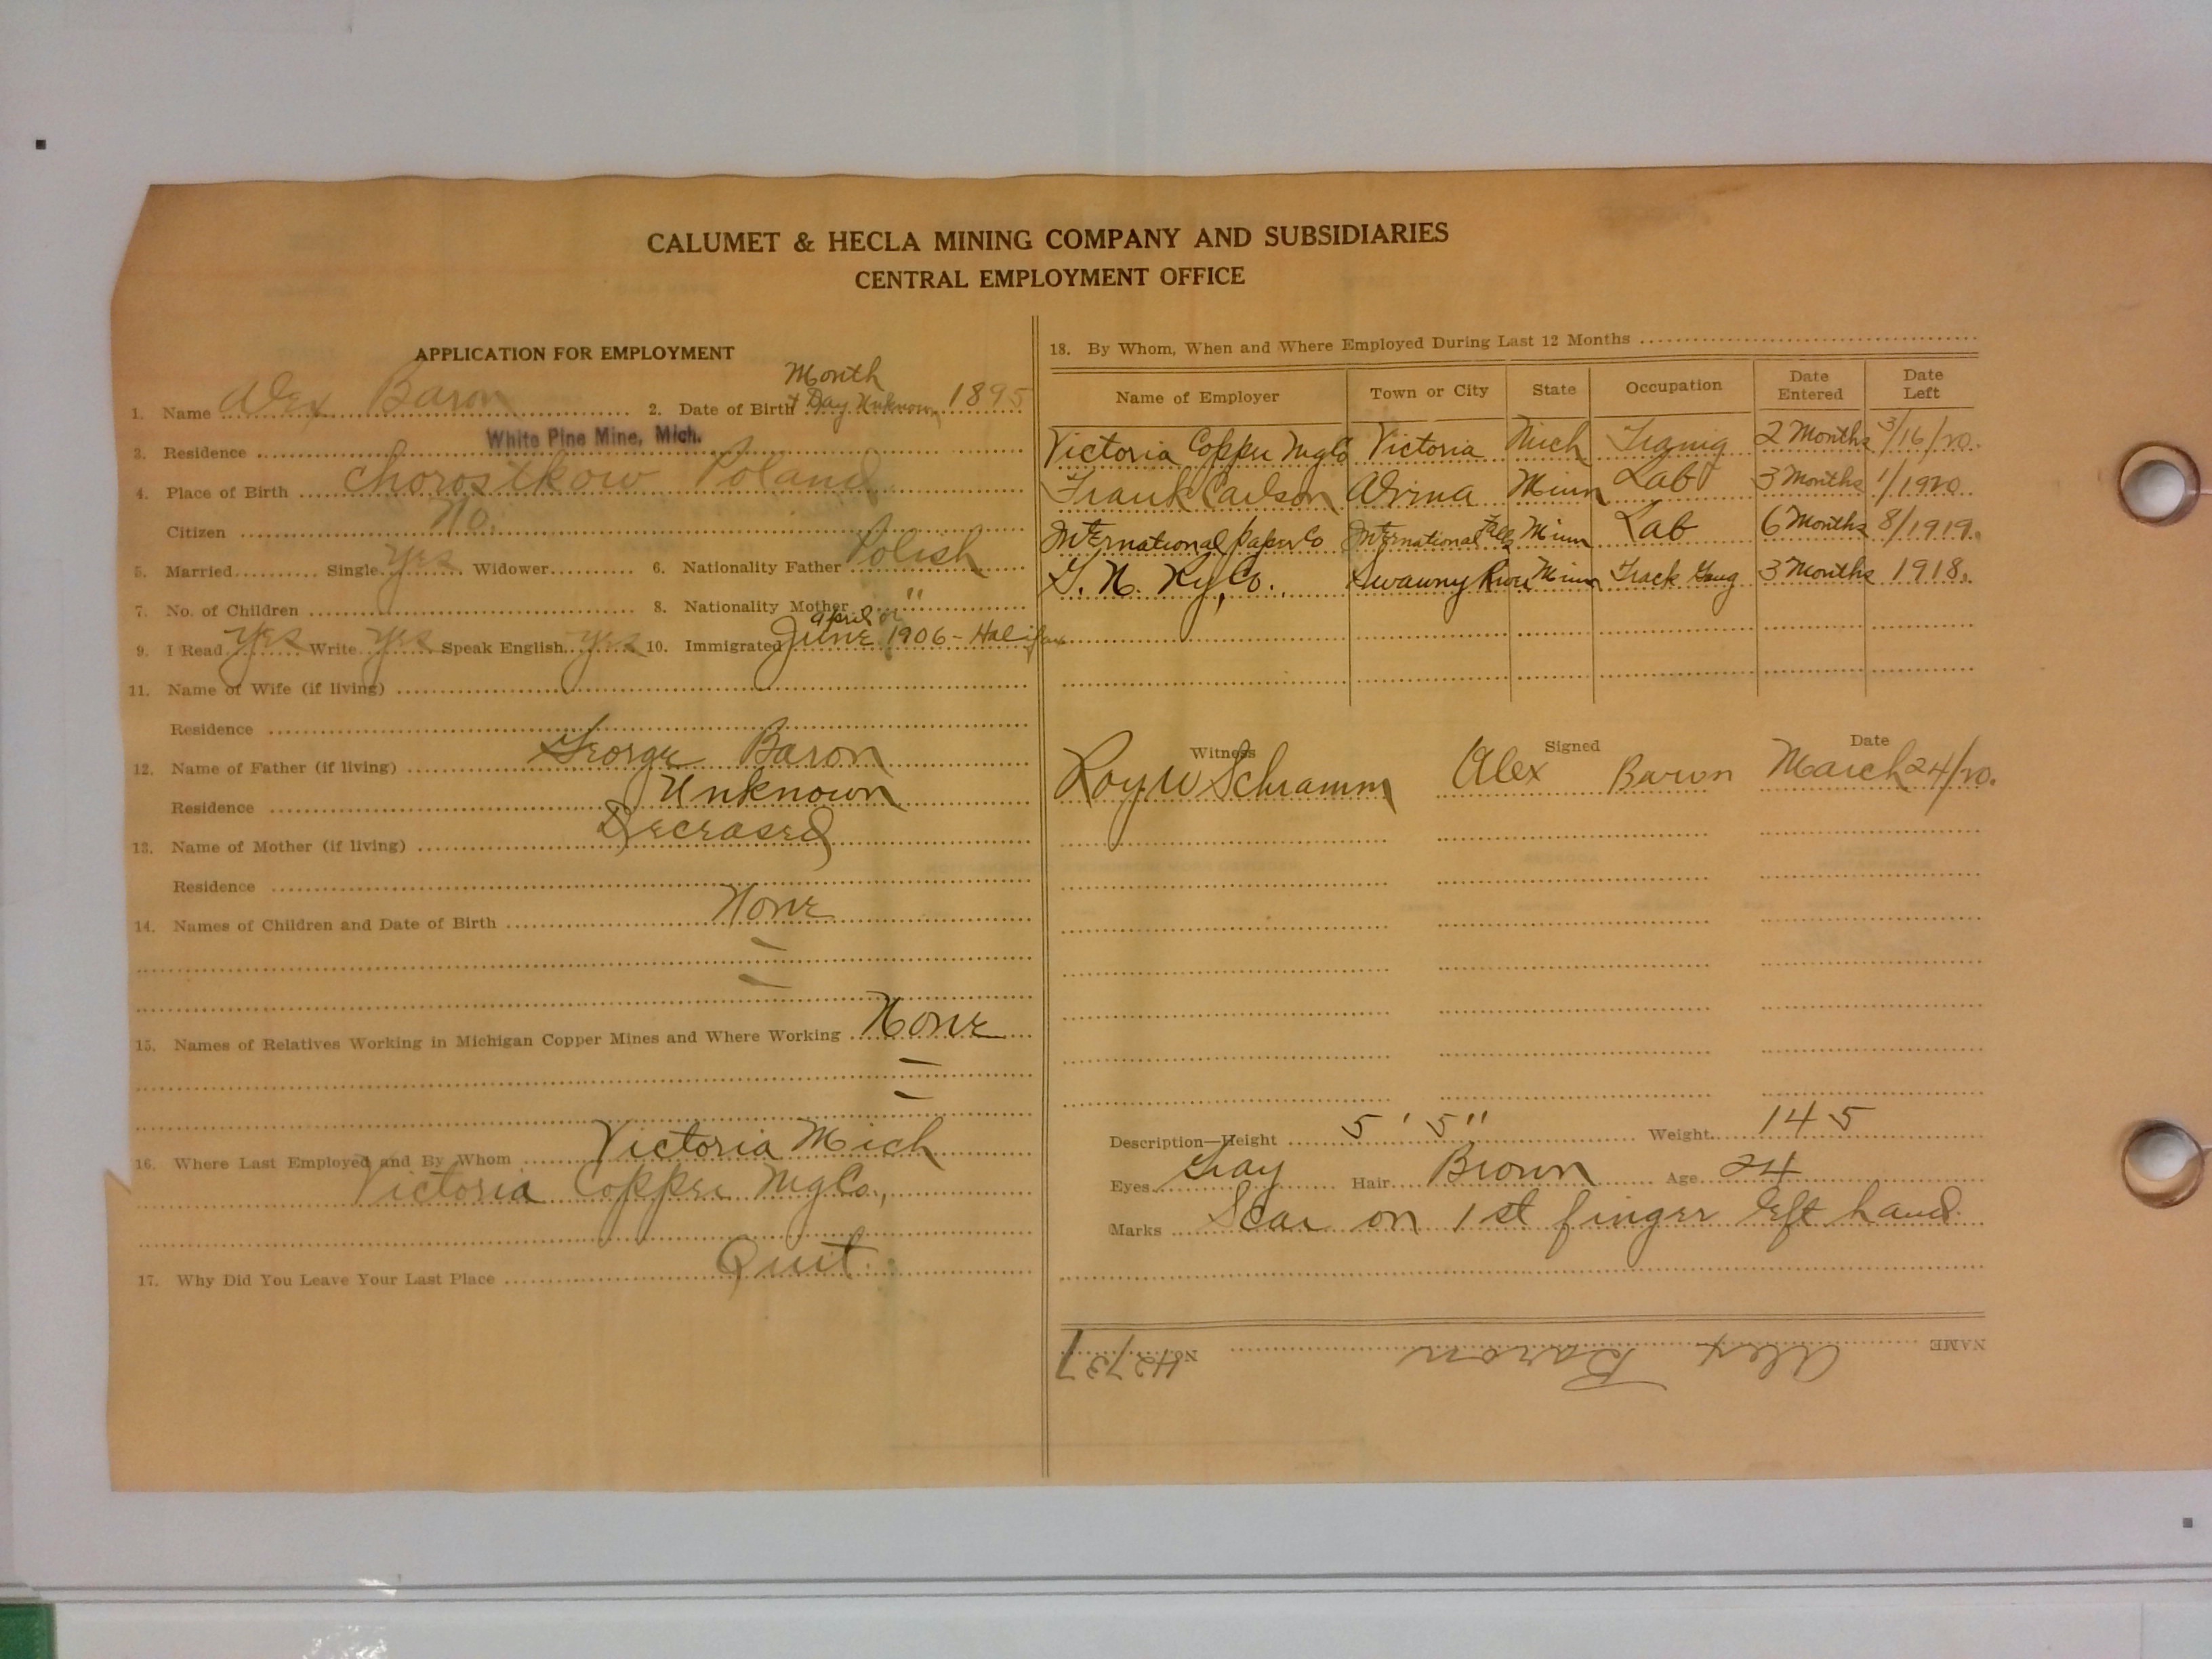 CALUMET & HECLA MINING COMPANY AND SUBSIDIARIES
CENTRAL EMPLOYMENT OFFICE
APPLICATION FOR EMPLOYMENT
1. Name Alex Baron 2. Date of Birth Month + Day Unknown 1895
3. Residence White Pine Mine, Mich.
4. Place of Birth Chorostkow Poland
Citizen No.
5. Married Single Yes Widower 6. Nationality Father Polish
7. No. of Children 8. Nationality Mother "
9. I Read Yes Write Yes Speak English Yes 10. Immigrated April or June 1906 - Halifax
11. Name of Wife (if living)
Residence
12. Name of Father (if living) George Baron
Residence Unknown
13. Name of Mother (if living) Deceased
Residence
14. Names of Children and Date of Birth None
"
"
15. Names of Relatives Working in Michigan Copper Mines and Where Working None
"
"
16. Where Last Employed and By Whom Victoria Mich
Victoria Copper Mg Co.,
17. Why Did You Leave Your Last Place Quit.
18. By Whom, When and Where Employed During Last 12 Months
Name of Employer Town or City State Occupation Date Entered Date Left
Victoria Copper Mg Co Victoria Mich 2 Months 3/16/20.
Frank Carlson Minn Lab 3 Months 1/1920.
International Paper Co International Falls Minn Lab 6 Months 8/1919.
Ry. Co. River Minn Track Gang 3 Months 1918.
Witness Signed Date
Roy W Schramm Alex Baron March 24/20.
Description—Height 5' 5" Weight 145
Eyes Gray Hair Brown Age 24
Marks Scar on 1st finger left hand.
NAME Alex Baron No. H2737